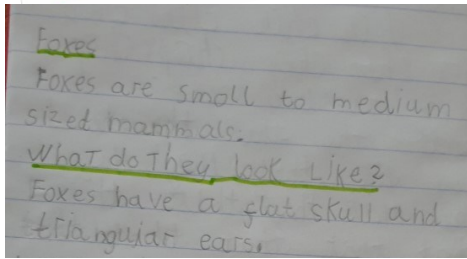 Foxes
Foxes are small to medium
sized mammals.
What do They look Like?
Foxes have a flat skull and
triangular ears.